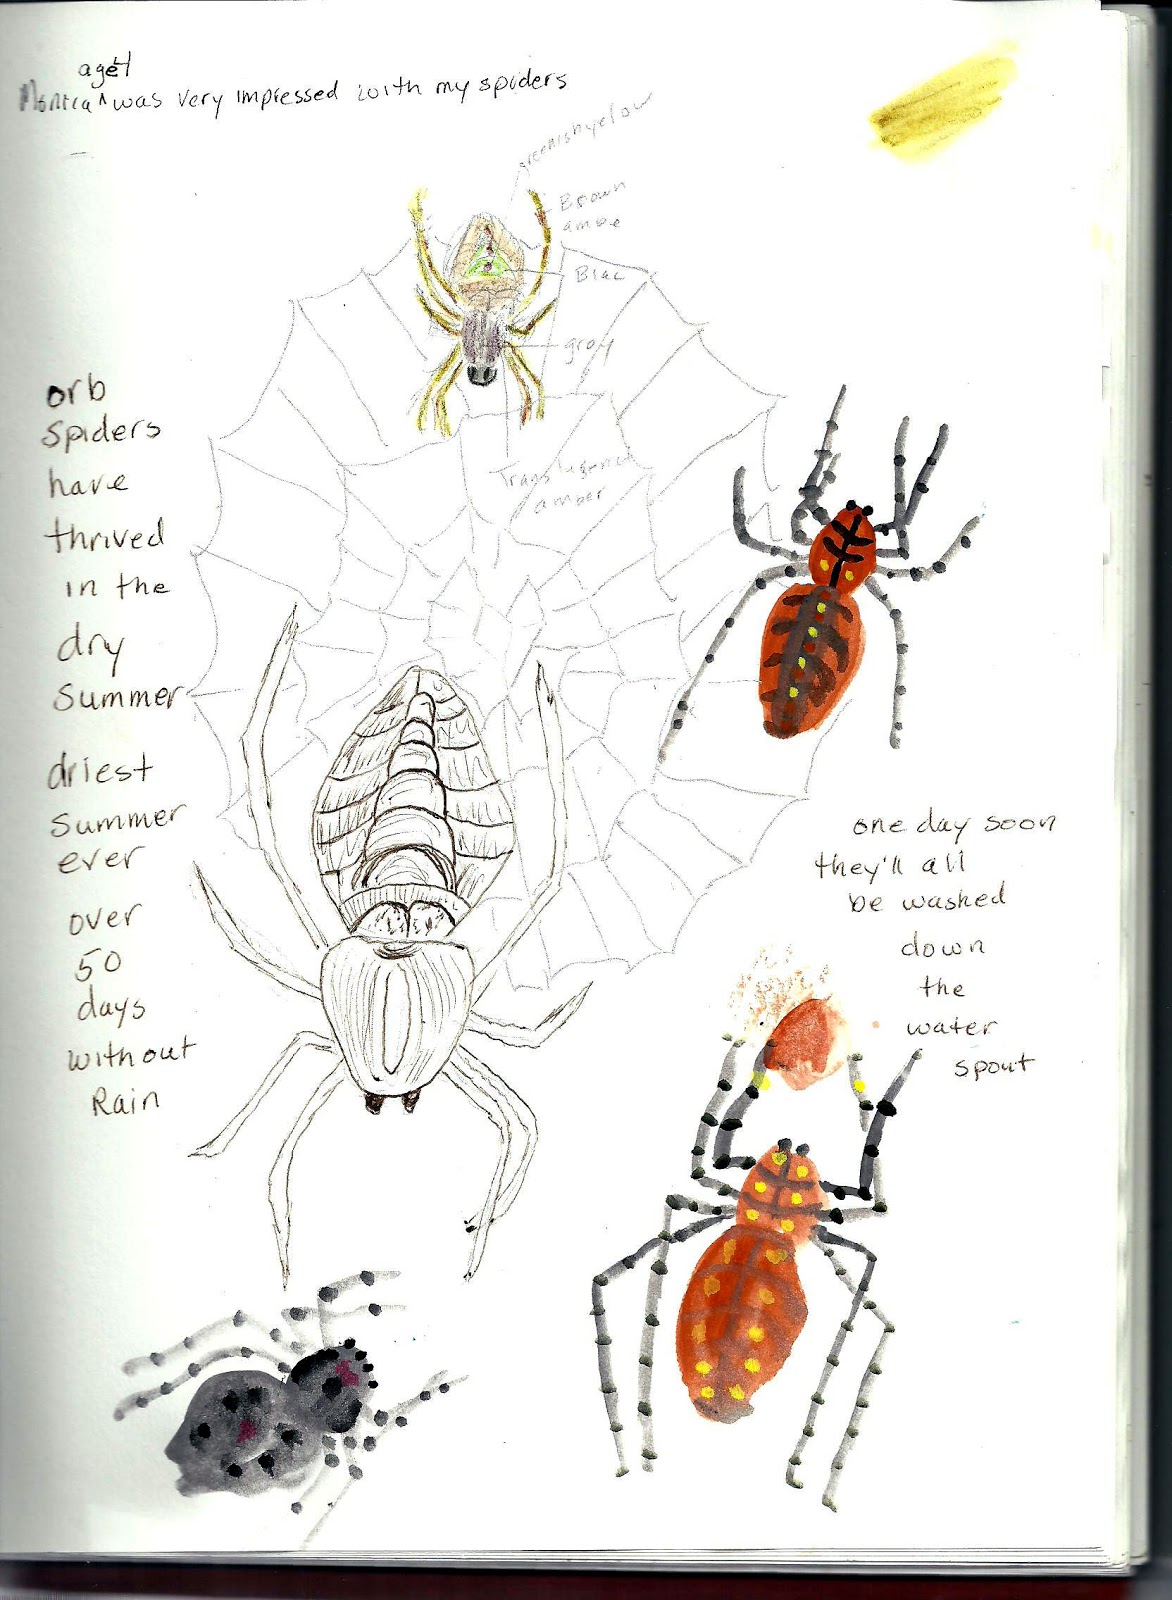 age 4
Montea ^ was very impressed with my spiders
greenishyelow
Brown
ambe
Blac
gray
Translugence
amber
orb
spiders
have
thrived
in the
dry
summer
driest
summer
ever
over
50
days
without
Rain
one day soon
they'll all
be washed
down
the
water
spout